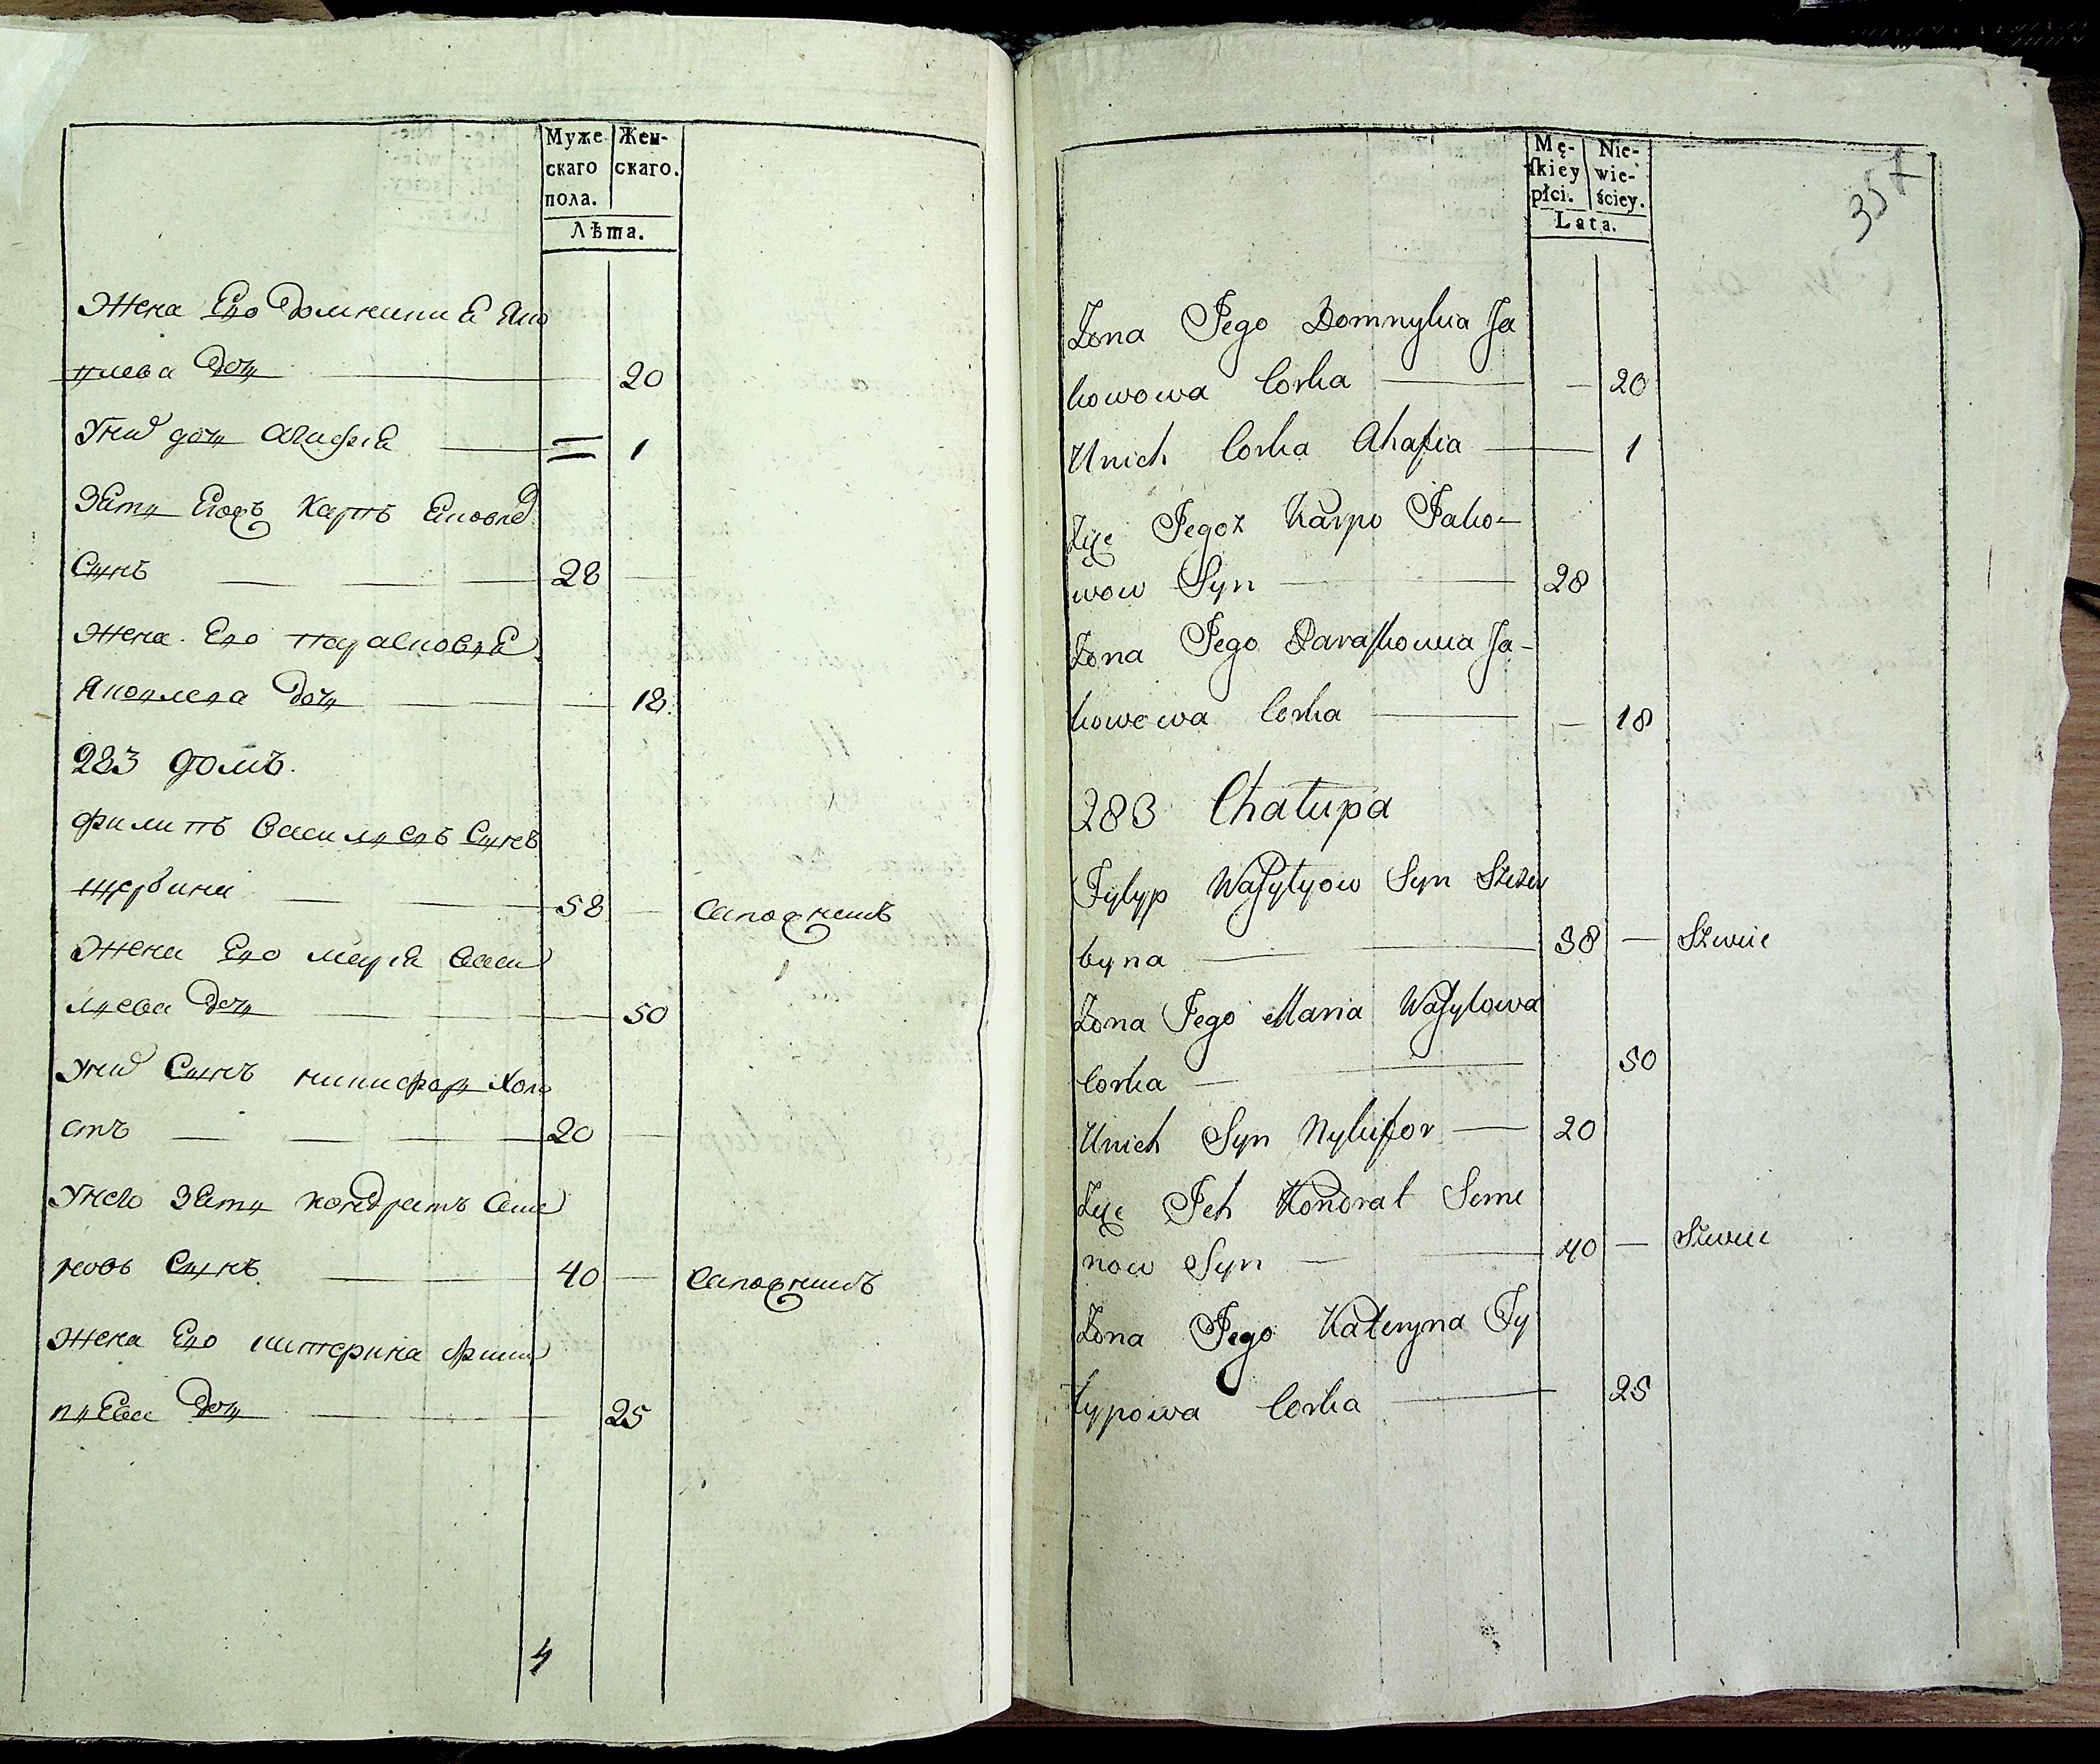 Муже
скаго
пола.
Жен-
скаго.
Лѣта.
Жена Его Домникиѧ Яко
влева Дочь 20
У них дочь Агафиѧ 1
Зять Егожъ Карпъ Яковлев
Сынъ 28
Жена Его Парасковиѧ
Яковлева Дочь 18
283 домъ.
Филипъ Васильевъ Сынъ
Щербина 58 Сапожникъ
Жена Его Мариѧ Васи
льева Дочь 50
У них Сынъ Никифоръ Холо
стъ 20
У него Зять Кондратъ Семе
новъ Сынъ 40 Сапожникъ
Жена Его Катерина Фили
пьева Дочь 25
4
357
Mę-
ſkiey
płci.
Nie-
wie-
ściey.
Lata.
Zona Jego Domnykia Ja
kowowa Corka 20
Unich Corka Ahafia 1
Zięc Jegoż Karpo Jako-
wow Syn 28
Zona Jego Paraſkowia Ja-
kowowa Corka 18
283 Chałupa
Fylyp Waſylyow Syn Szczer
byna 58 Szwiec
Zona Jego Maria Waſylowa
Corka 50
Unich Syn Nykifor 20
Zięc Jch Kondrat Seme
now Syn 40 Szwiec
Zona Jego Kateryna Fy
lypowa Corka 25